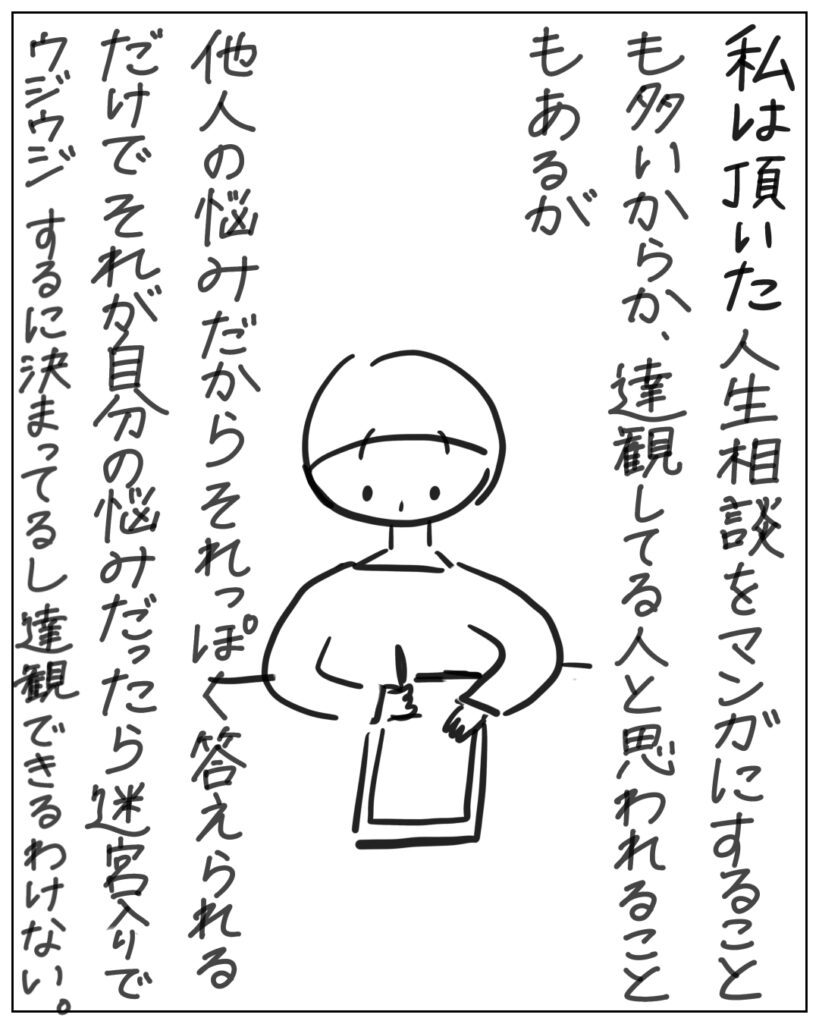 私は頂いた人生相談をマンガにすること
も多いからか、達観してる人と思われること
もあるが
他人の悩みだからそれっぽく答えられる
だけでそれが自分の悩みだったら迷宮入りで
ウジウジするに決まってるし達観できるわけない。